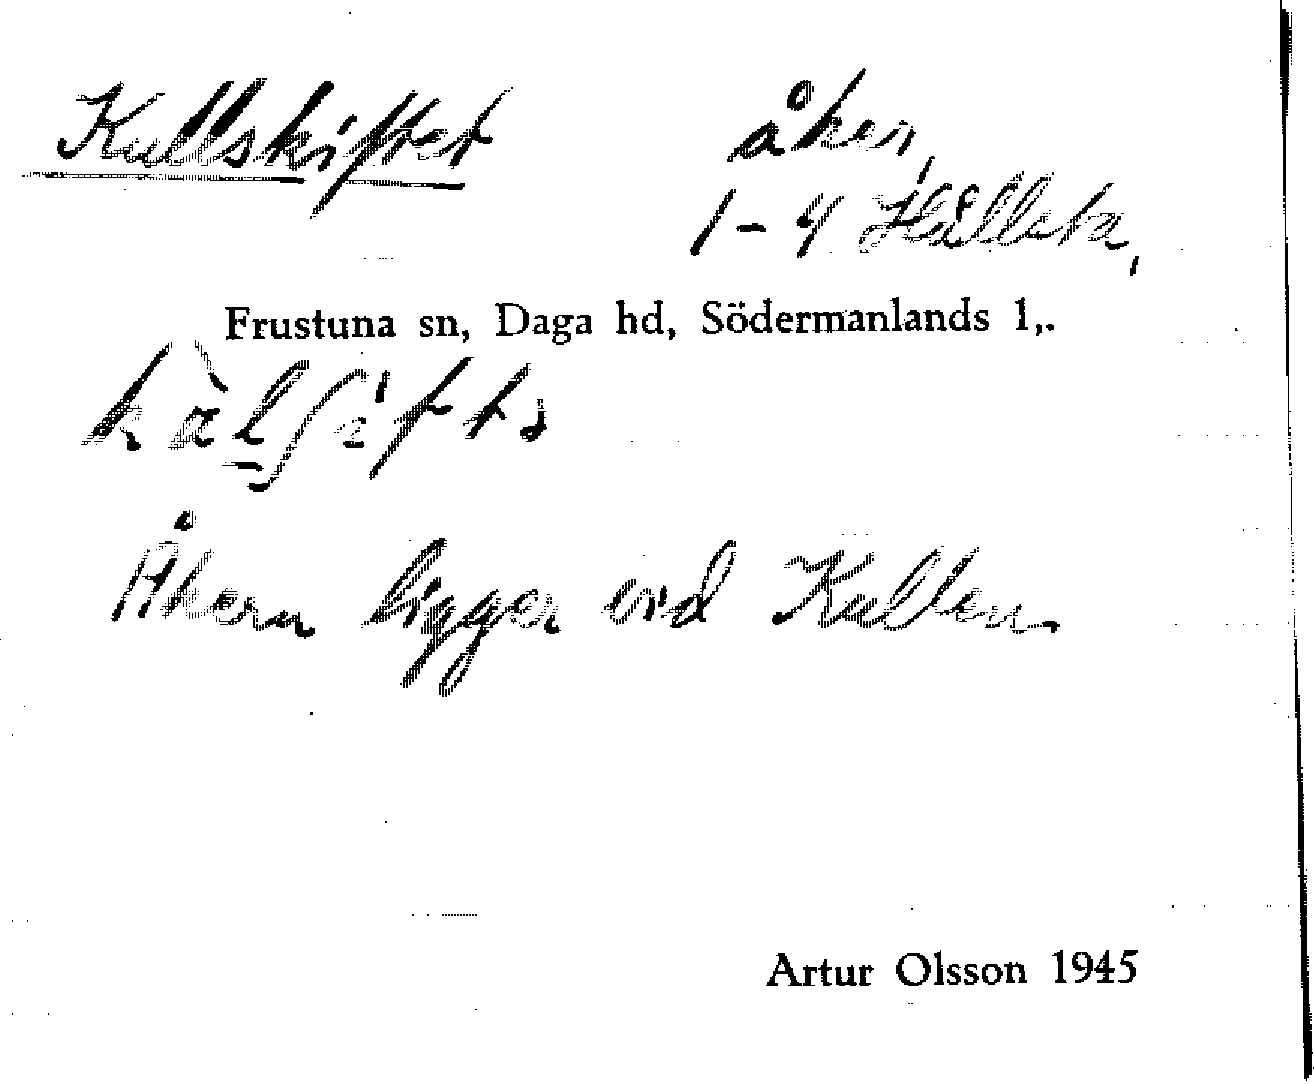 Kullskiftet
åker,
1-4 Hålleta,
Frustuna sn, Daga hd, Södermanlands l,.
Åkern ligger vid Kullen.
Artur Olsson 1945